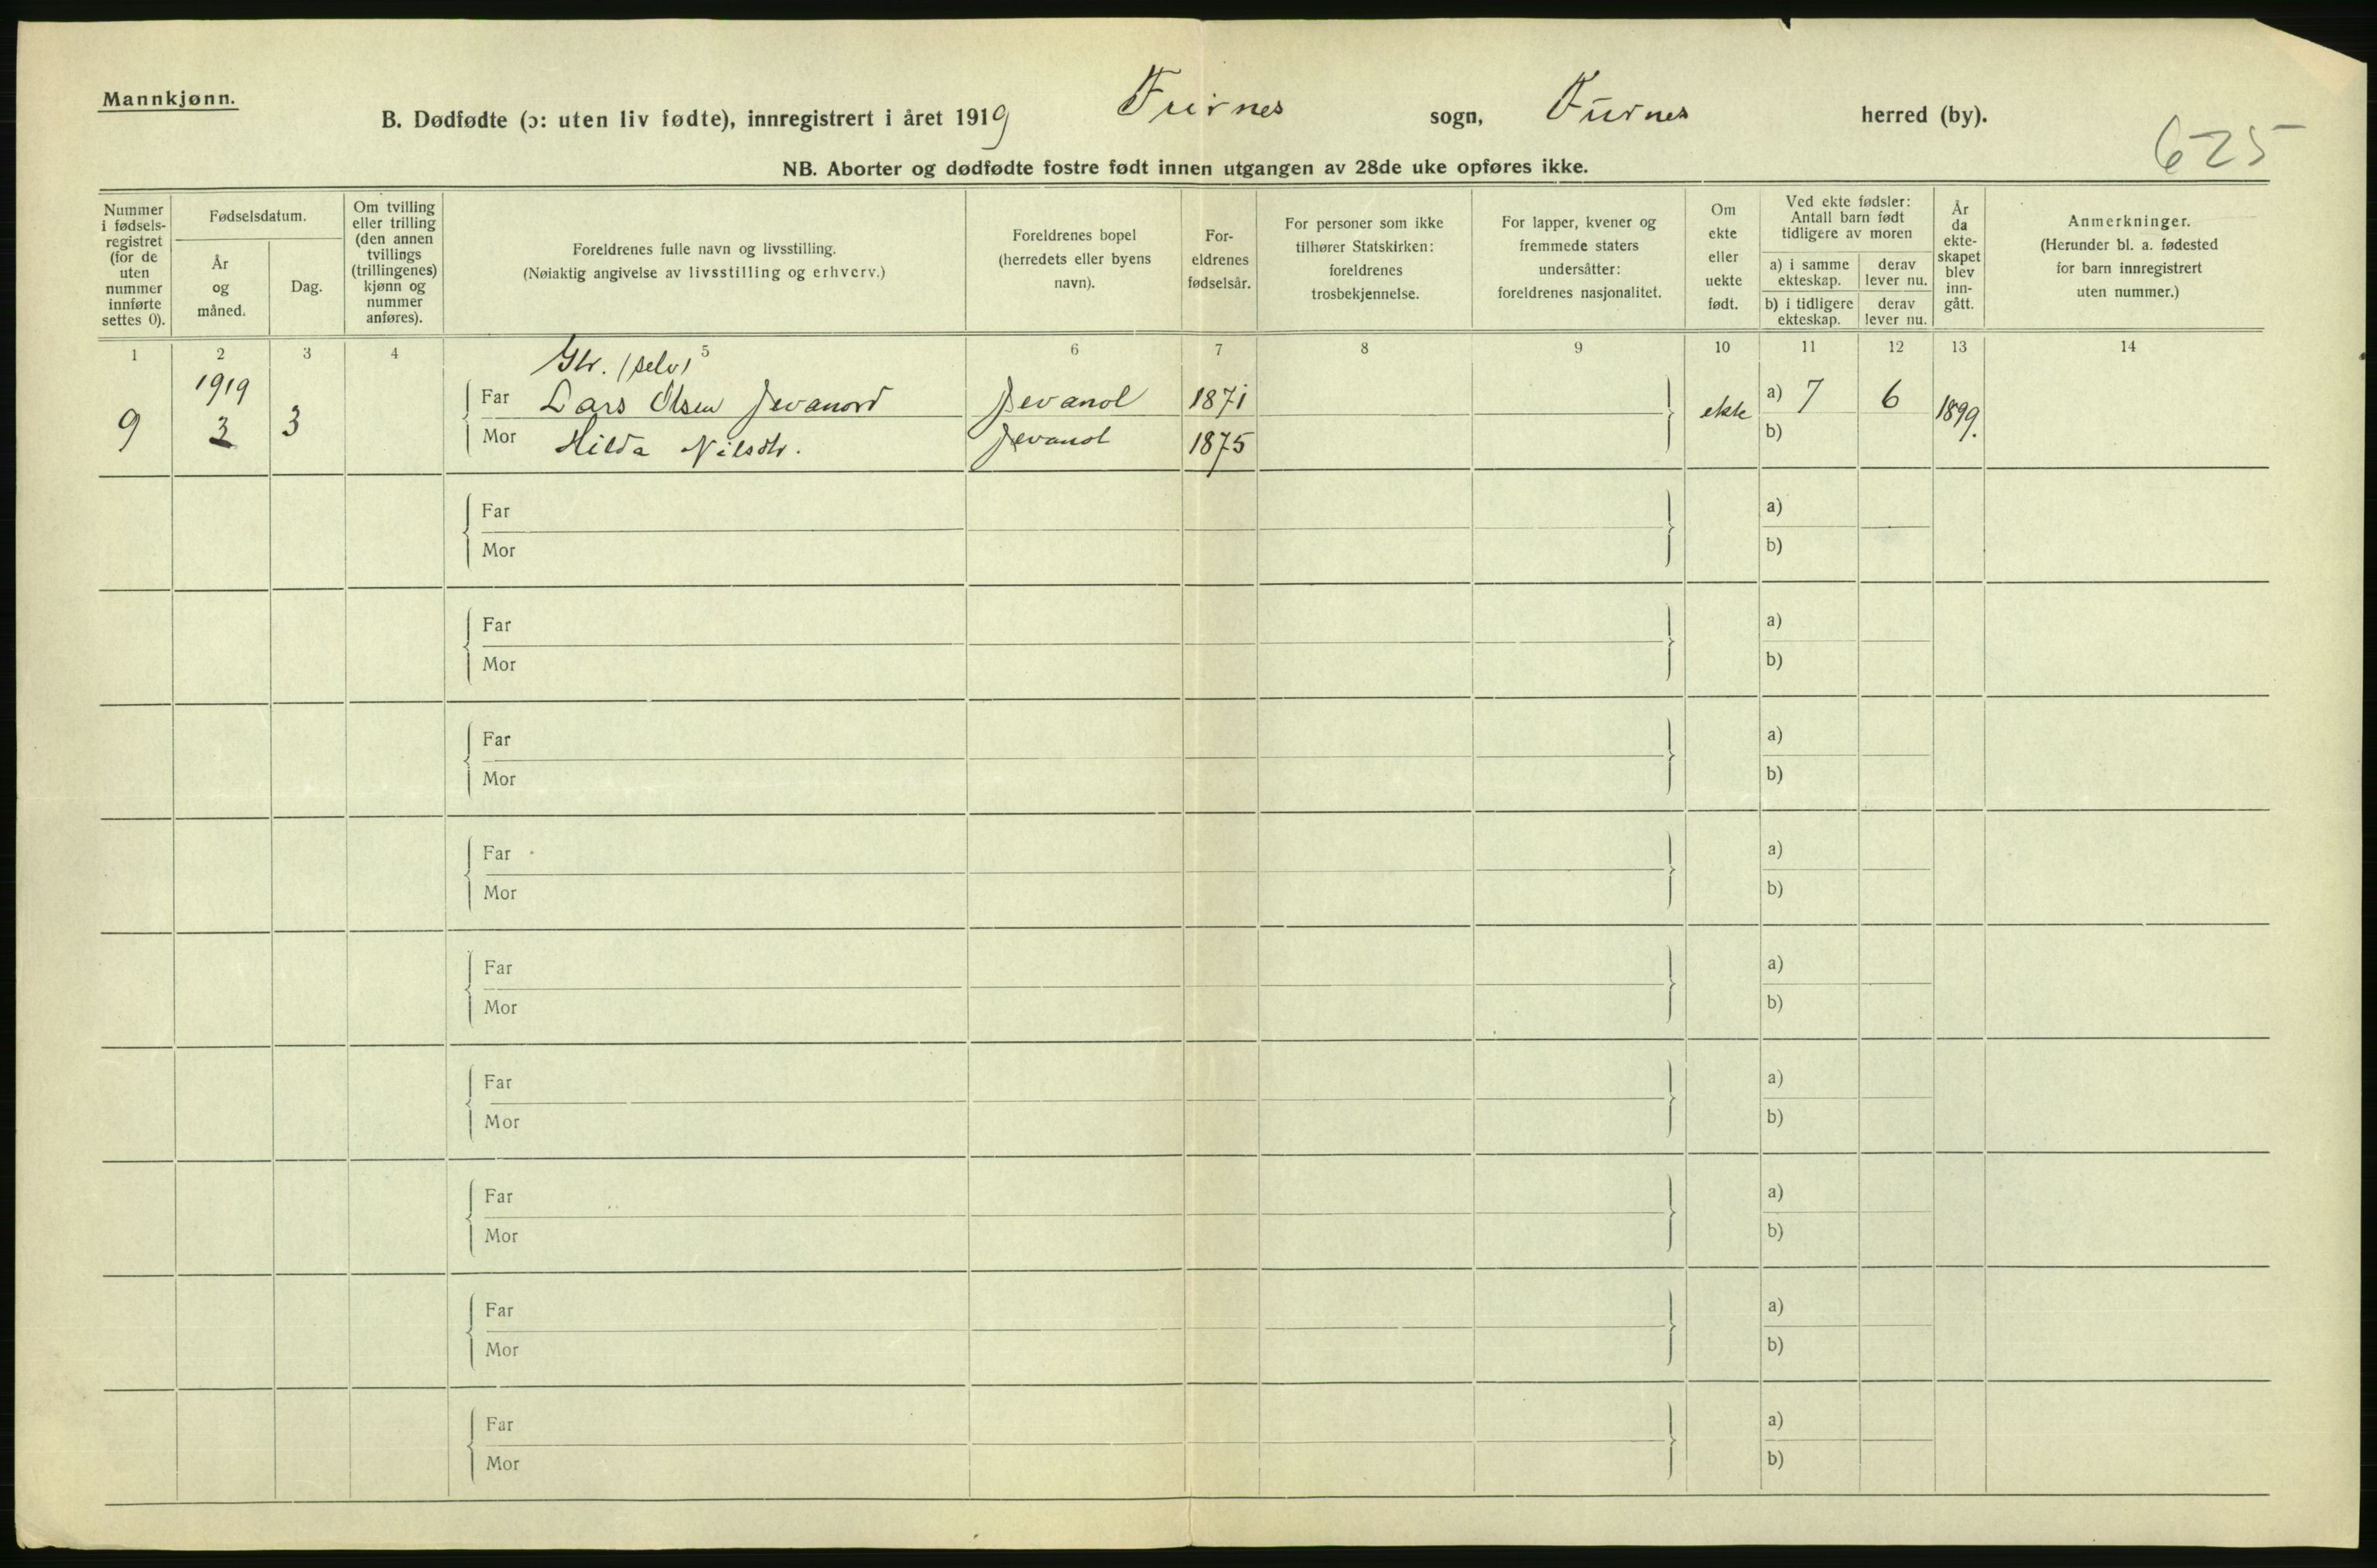 Mannkjønn.
B. Dødfødte (ɔ: uten liv fødte), innregistrert i året 1919 Furnes sogn, Furnes herred (by).
625
NB. Aborter og dødfødte fostre født innen utgangen av 28de uke opføres ikke.
Nummer i fødsels-registret (for de uten nummer innførte settes 0).
Fødselsdatum.
År og måned.
Dag.
Om tvilling eller trilling (den annen tvillings (trillingenes) kjønn og nummer anføres).
Foreldrenes fulle navn og livsstilling.
(Nøiaktig angivelse av livsstilling og erhverv.)
Foreldrenes bopel (herredets eller byens navn).
For-eldrenes fødselsår.
For personer som ikke tilhører Statskirken: foreldrenes trosbekjennelse.
For lapper, kvener og fremmede staters undersåtter: foreldrenes nasjonalitet.
Om ekte eller uekte født.
Ved ekte fødsler: Antall barn født tidligere av moren
a) i samme ekteskap.
derav lever nu.
b) i tidligere ekteskap.
derav lever nu.
År da ekte-skapet blev inn-gått.
Anmerkninger.
(Herunder bl. a. fødested for barn innregistrert uten nummer.)
1 2 3 4 5 6 7 8 9 10 11 12 13 14
(selv)
9 1919 3 3 Far Lars Olsen 1871 ekte a) 7 6 1899.
Mor Hilda Nilsdtr. 1875 b)
Far a)
Mor b)
Far a)
Mor b)
Far a)
Mor b)
Far a)
Mor b)
Far a)
Mor b)
Far a)
Mor b)
Far a)
Mor b)
Far a)
Mor b)
Far a)
Mor b)